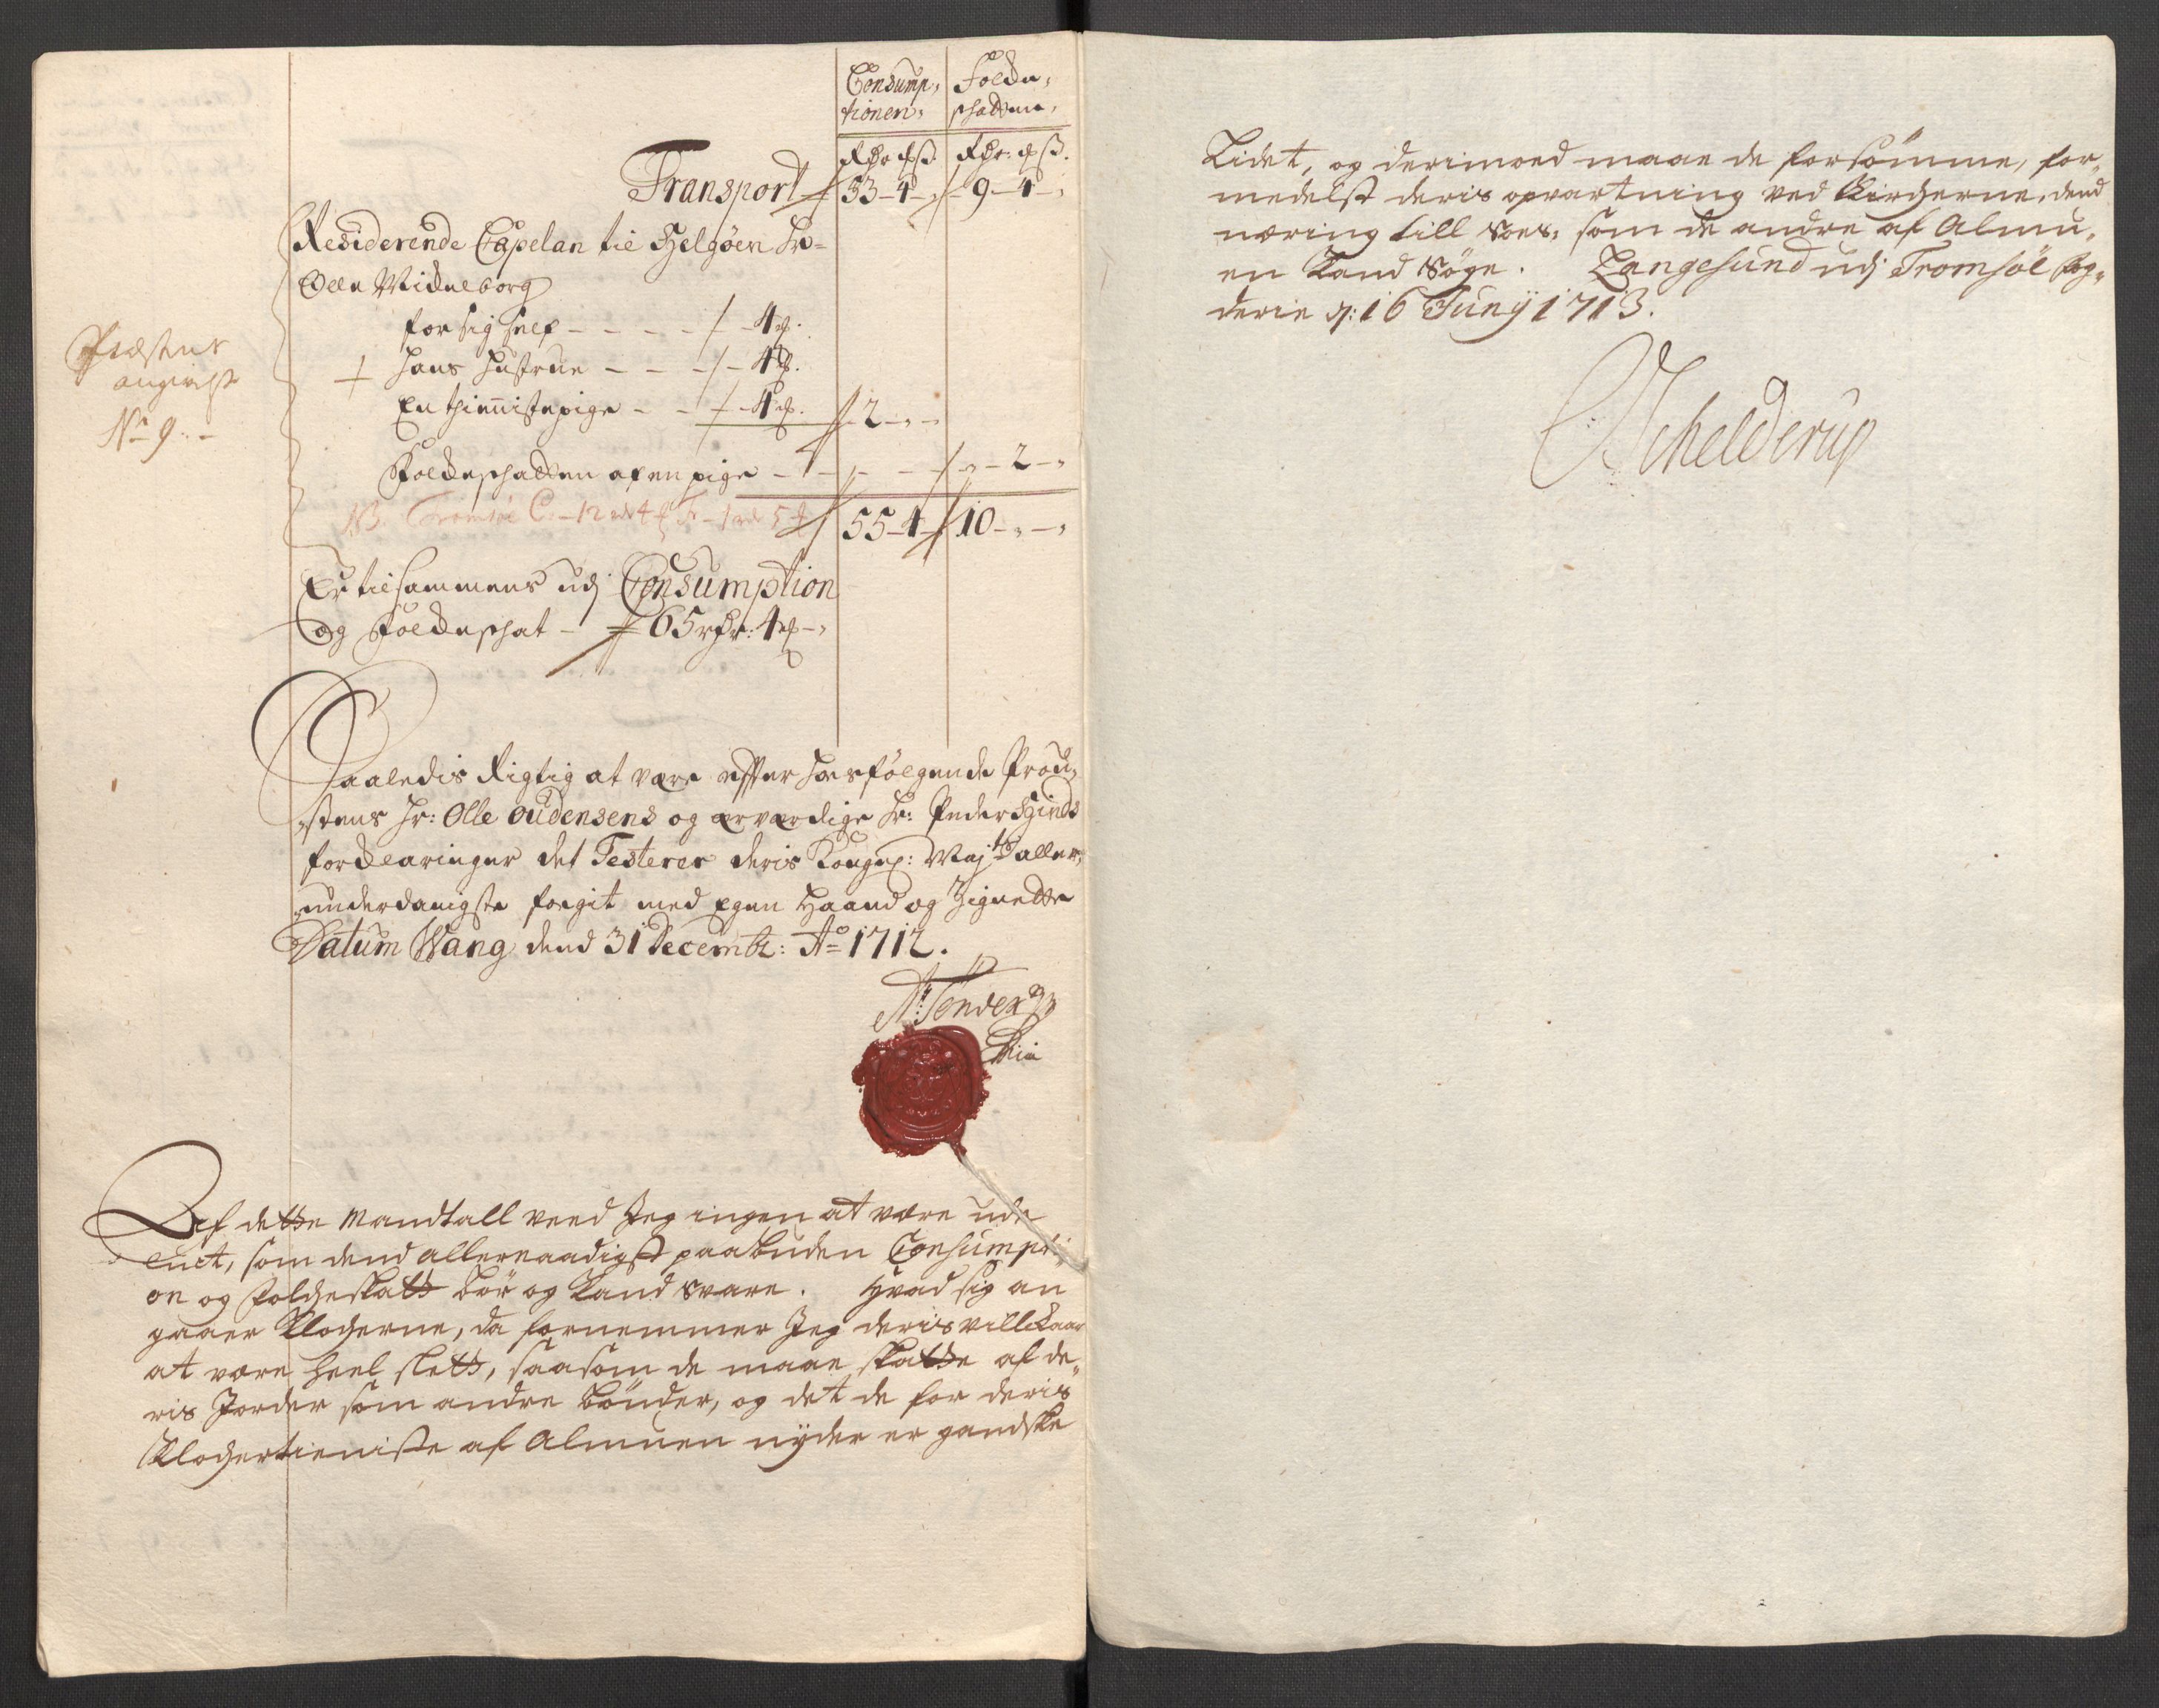 Consump-
tionen,
Folcke-
schatten,
Rdr ort ß.
Rdr: ort ß.
Transport
53-4-,
9-4-,
Residerende Capelan til Helgöen Hr-
Olle Mickelborg
for sig self - - - - 4 ort.
+ hans hustrue - - - 4 ort.
En thiennistepige - - 4 ort.
2-,-
Præstens
angivelse
No 9.-
Folckeschatten af en pige -
,-2-,
NB. Tromsöe C:-12 rd 4 F-1 rd 5
55-4-
10-,-,
Er tilsammens udj Consumption
og Folckeschat - 65 rdr: 4 ort -,
Saaledis Rigtig at være effter hosfölgende Prou-
stens Hr: Olle Oudensens og ærværdige Hr: Peder Hinds
forklaringer det Testerer deris Kongel: Maj:ts aller-
underdanigste fogit med Egen Haand og Zignette
Datum Wang dend 31 Decembr: Ao 1712.
A: Tönder
Af dette Mandtall veed Jeg ingen at være ude
luct, som dend allernaadigst paabuden Consumpti-
on og Folcheskatt bör og kand svare. Hvad sig an
gaaer Klocherne, da fornemmer Jeg deris villckaar
at være heel slett, saasom de maae skatte af de-
ris Jorder som andre bönder, og det de for deris
Klochertieniste af Almuen nyder er gandske
Lidet, og derimoed maae de forsömme, for-
medelst deris opvartning ved Kircherne, dend
næring till Søes, som de andre af Almu-
en kand Søge. Langesund udj Tromsöe fog-
derie d: 16 Junij 1713.
Schelderup